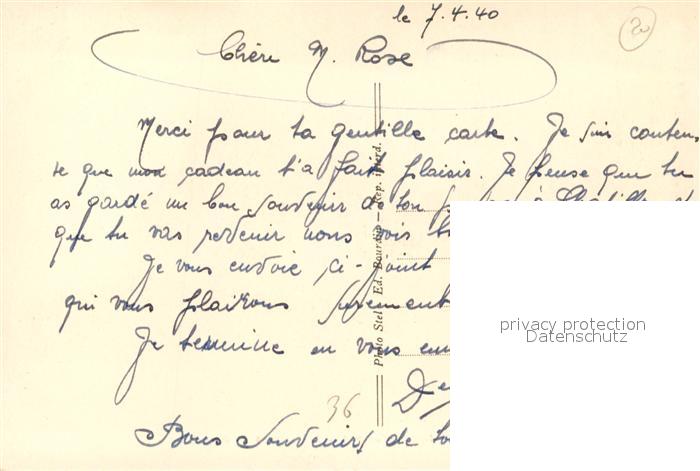 le 7.4.40
20
Chère M. Rose
Merci pour ta gentille carte. Je suis conten
te que mon cadeau t'a fait plaisir. Je pense que tu
as gardé un bon souvenir de ton à
que tu vas revenir nous voir
Je vous envoie ci-joint
qui vous plairons surement
Je termine en vous
36
Bons Souvenirs de
Photo Stel Ed. Bourdin
privacy protection
Datenschutz